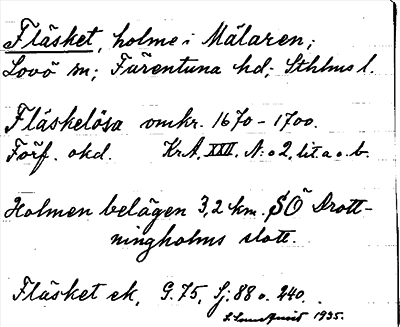 Fläsket, holme i Mälaren;
Lovö sn; Färentuna hd; Sthlms l.
Fläskelösa omkr. 1670-1700.
Förf. okd. KrA, XXII, N:o 2, lit. a o. b.
Holmen belägen 3,2 km. SÖ Drott-
ningholms slott.
Fläsket ek, G. 75, Lj: 88 o. 240.
1935.